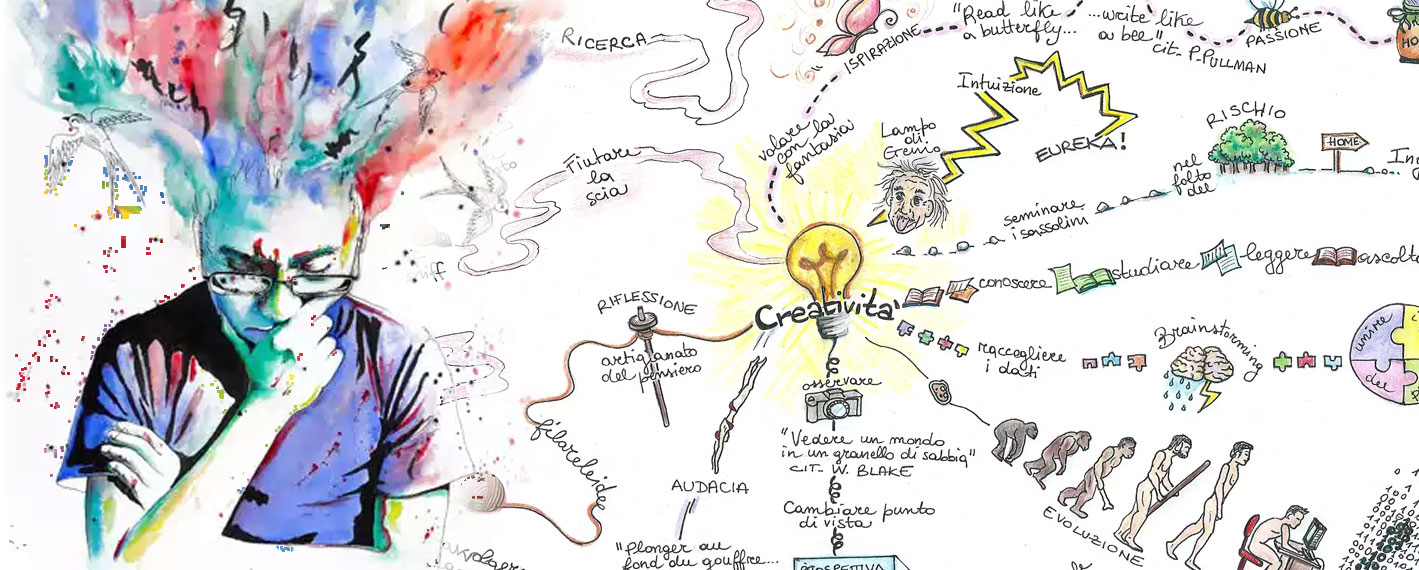 RICERCA
ISPIRAZIONE
"Read like
a butterfly...
...write like
a bee"
cit. P. PULLMAN
PASSIONE
HO
Intuizione
EUREKA!
Lampo
di
Genio
volare
con la
fantasia
Fiutare
la
scia
RISCHIO
HOME
nel
folto
del
seminare
i sassolini
Creatività
conoscere
studiare
leggere
ascolta
RIFLESSIONE
artigianato
del pensiero
filareleidee
raccogliere
i dati
Brainstorming
unire
dei
osservare
"Vedere un mondo
in un granello di sabbia"
CIT. W. BLAKE
Cambiare punto
di vista
PROSPETTIVA
AUDACIA
"Plonger au
fond du gouffre...
EVOLUZIONE